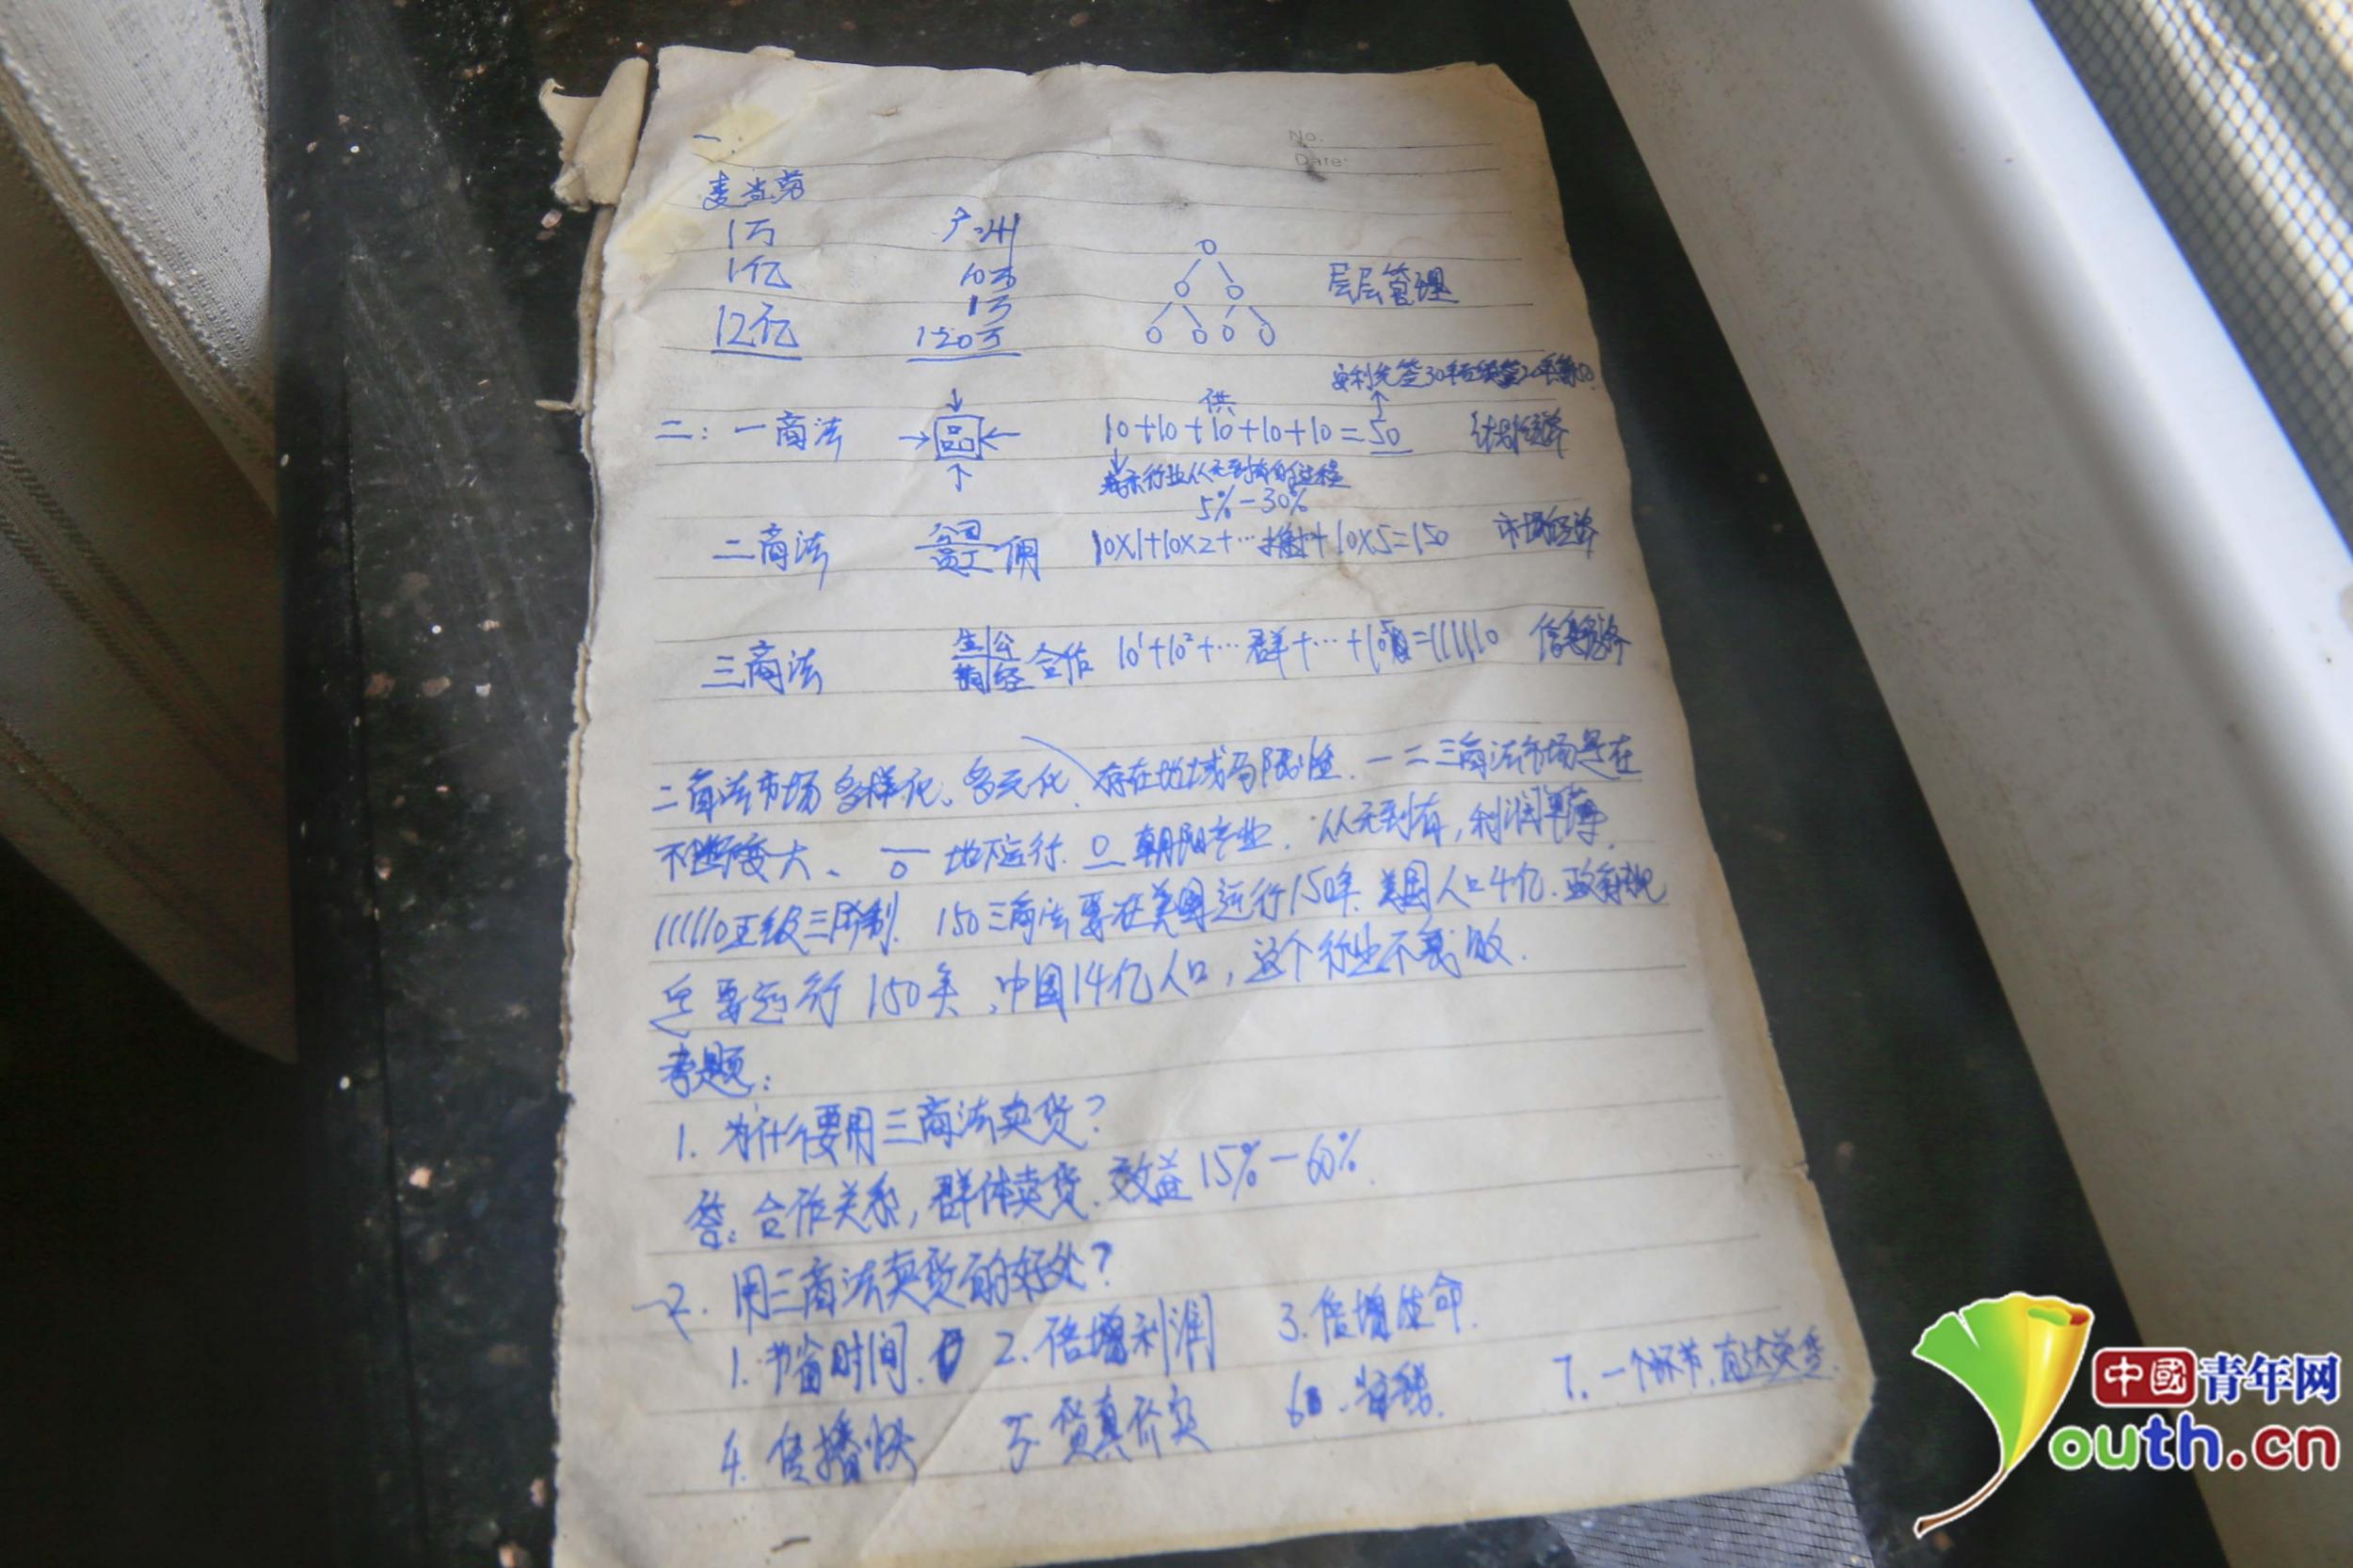 一
No.
Date:
麦当劳
1万 广州
1亿 10万
1万
12亿 120万
层层管理
安利先签30年后续签20年等50
供
二: 一商法 品 10+10+10+10+10=50 计划经济
表示行业从无到有的过程
5%-30%
二商法 公司 员工 佣 10×1+10×2+… +10×5=150 市场经济
三商法 生 公 销 经 合作 10¹+10²+…群+…+10⁵=111110 信息经济
二商法市场多样化、多元化、存在地域局限性、一二三商法市场是在
不断变大、 地下运行. 朝阳产业. 从无到有,利润单薄.
111110五级三阶制. 150三商法要在美国运行150年. 美国人口4亿.
要运行150年、中国14亿人口,这个行业不衰败.
考题:
1. 为什么要用三商法卖货?
答: 合作关系,群体卖货. 效益15%-60%.
2. 用三商法卖货的好处?
1. 节省时间. 2. 倍增利润 3. 倍增生命.
4. 传播快 5. 货真价实 6. 省钱. 7. 一个环节,直达卖货.
中國青年网
Youth.cn